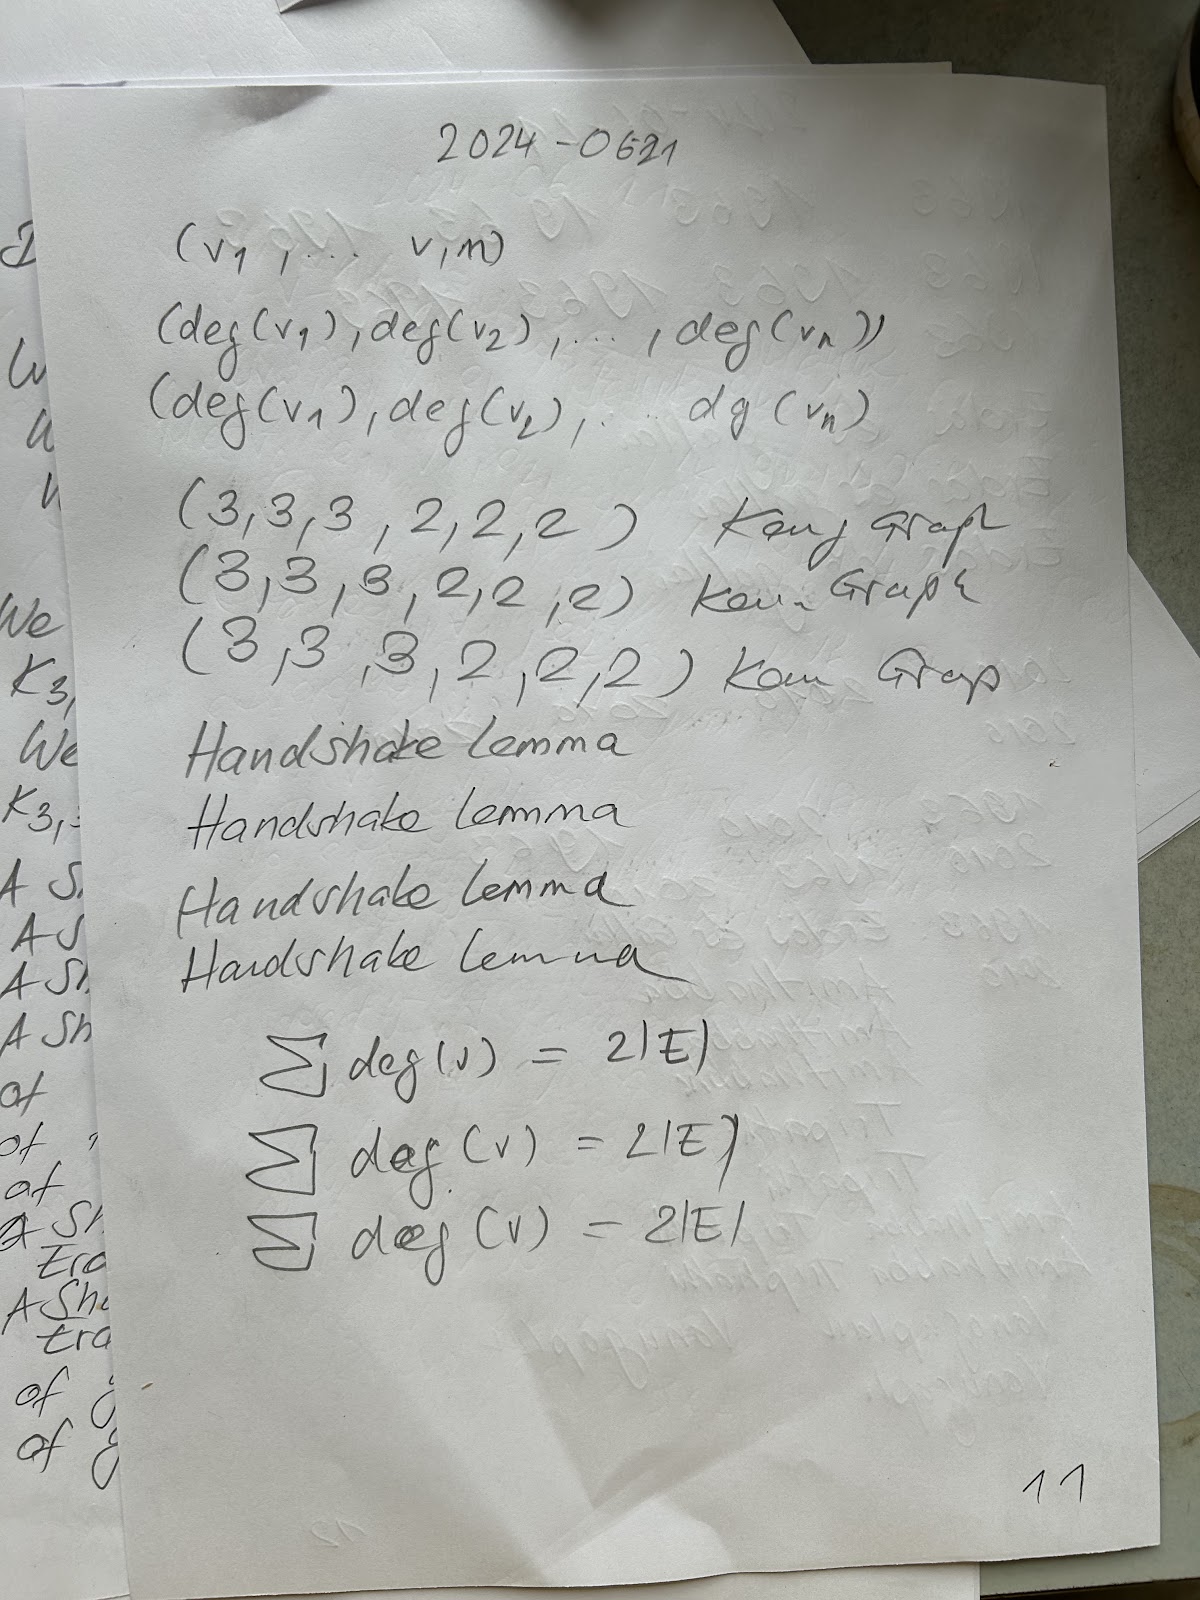 2024-0621
(v1, ... v,n)
(deg(v1), deg(v2), ..., deg(vn))
(deg(v1), deg(v2), ... dg(vn)
(3,3,3,2,2,2) Graph
(3,3,3,2,2,2) Graph
(3,3,3,2,2,2) Grap
Handshake Lemma
Handshake Lemma
Handshake Lemma
Handshake Lemma
∑ deg(v) = 2|E|
∑ deg(v) = 2|E|
∑ deg(v) = 2|E|
11
We
K3,
We
K3,3
A S
A S
A Sh
A Sh
of
of
of
A Sh
Era
A Sha
Era
of g
of g